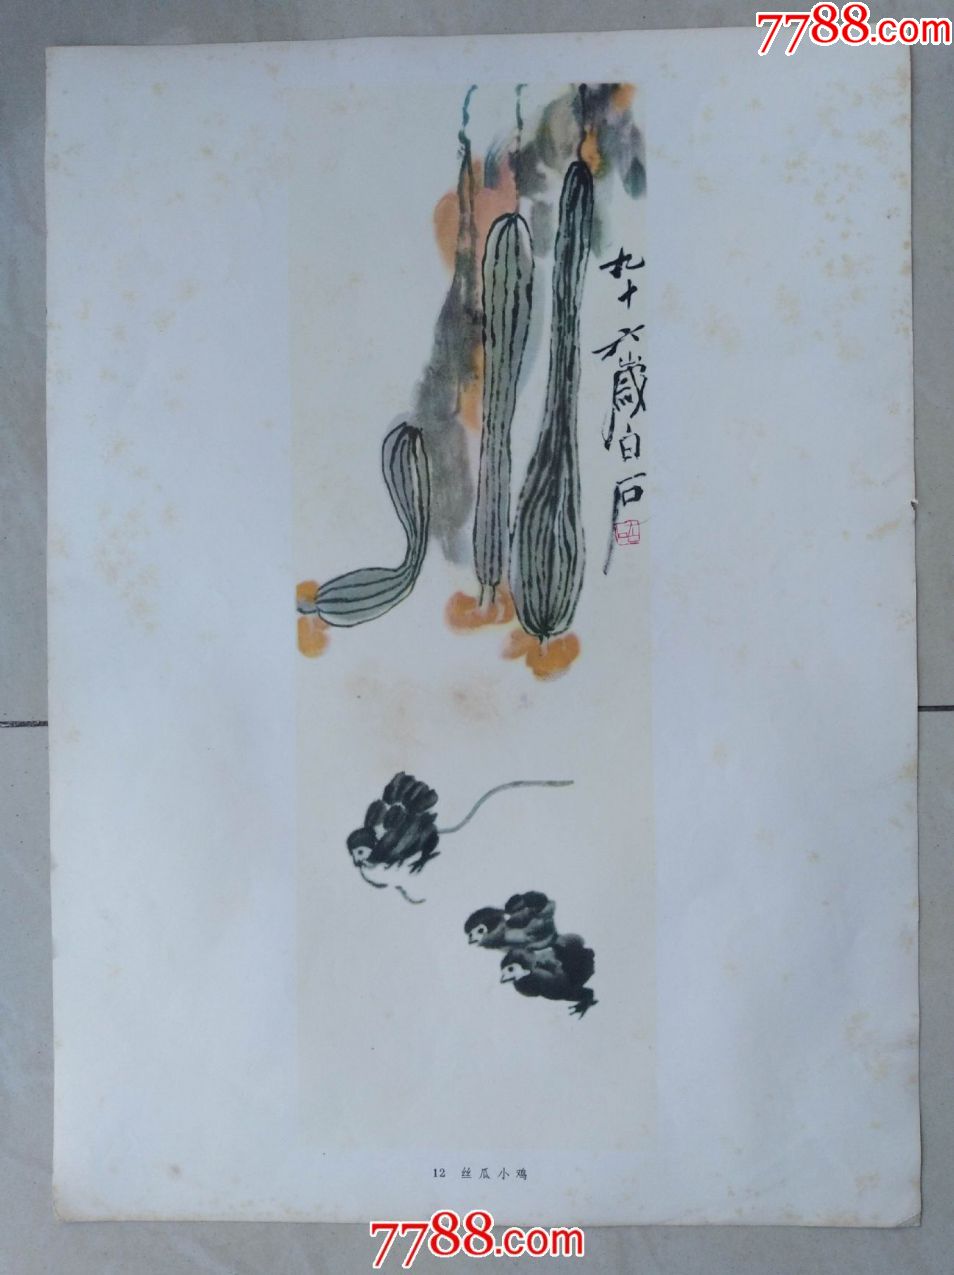 7788.com红网
九十六歲白石
12 丝瓜小鸡
7788.com红网